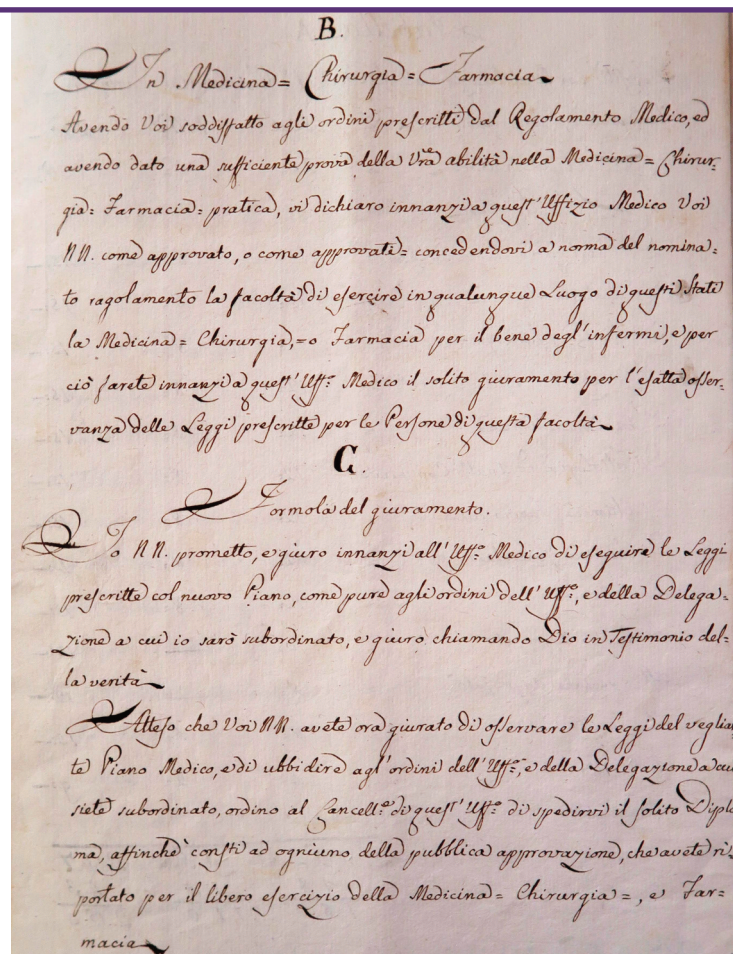 B.
In Medicina = Chirurgia = Farmacia
Avendo Voi soddisfatto agli ordini prescritti dal Regolamento Medico, ed
avendo dato una sufficiente prova della Vrã abilità nella Medicina = Chirur-
gia = Farmacia = pratica, vi dichiaro innanzi a quest'Uffizio Medico Voi
NN. come approvato, o come approvati = concedendovi a norma del nomina=
to ragolamento la facoltà di esercire in qualunque Luogo di questi Stati
la Medicina = Chirurgia, = o Farmacia per il bene degl'infermi, e per
ciò farete innanzi a quest'Uff.º Medico il solito giuramento per l'esatta osser-
vanza delle Leggi prescritte per le Persone di questa facoltà
C.
Formola del giuramento.
Io NN. prometto, e giuro innanzi all'Uff.º Medico di eseguire le Leggi
prescritte col nuovo Piano, come pure agli ordini dell'Uff.º, e della Delega=
zione a cui io sarò subordinato, e giuro chiamando Dio in Testimonio del=
la verità
Atteso che Voi NN. avete ora giurato di osservare le Leggi del veglian
te Piano Medico, e di ubbidire agl'ordini dell'Uff.º, e della Delegazione a cui
siete subordinato, ordino al Cancell.º di quest'Uff.º di spedirvi il solito Diplo
ma, affinchè consti ad ogniuno della pubblica approvazione, che avete ri=
portato per il libero esercizio della Medicina = Chirurgia =, e Far=
macia